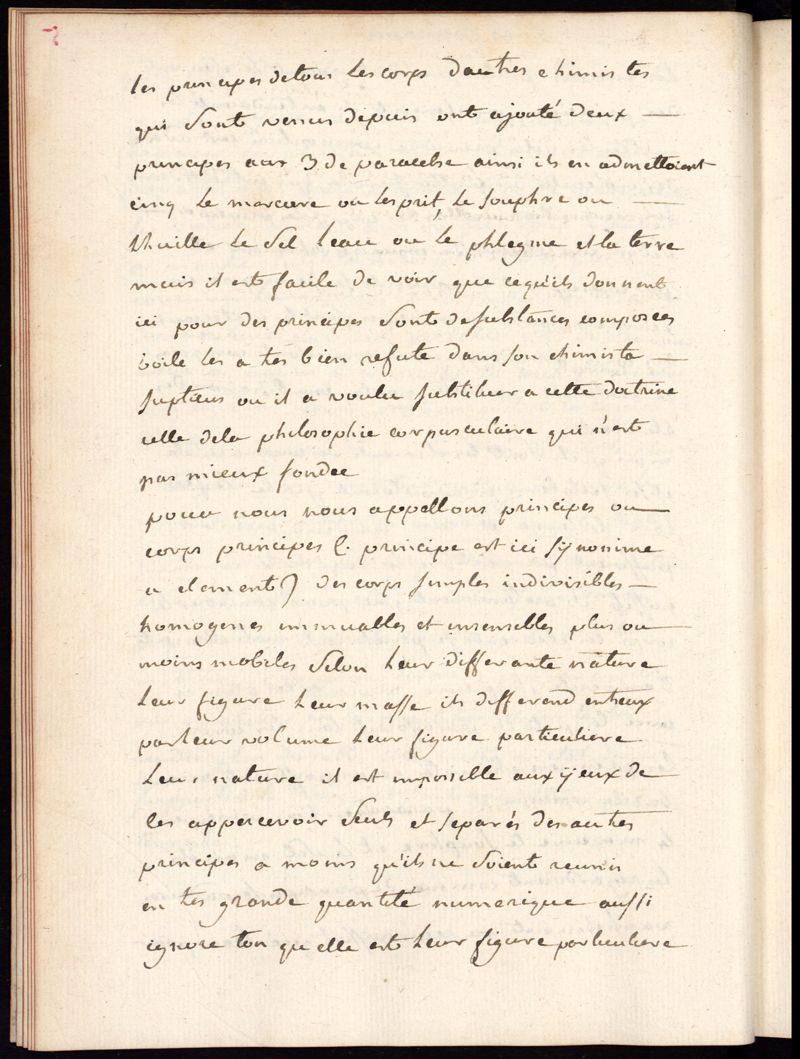 les principes detous les corps dautres chimistes
qui sont venus depuis ont ajouté deux —
principes aux 3 de paracelse ainsi ils en admettoient
cinq le mercure ou lesprit, le souphre ou —
lhuille le sel leau ou le phlegme et la terre
mais il est facile de voir que cequ'ils donnent
ici pour des principes sont desubstances composées
boile les a tes bien refuté dans son chimista —
suptieus ou il a voulu substituer a cette doctrine
celle dela philosophie corpusculaire qui n'est
pas mieux fondee
pour nous nous appellons principes ou —
corps principes (. principe est ici synonime
a element) des corps simples indivisibles —
homogenes immuables et insensibles plus ou —
moins mobiles selon leur differante nature
leur figure leur masse ils differend entreux
par leur volume leur figure particuliere
leur nature il est impossible aux yeux de
les appercevoir seuls et separés des autres
principes a moins qu'ils ne soient reunis
en tes grande quantité numerique aussi
ignore ton quelle est leur figure particuliere